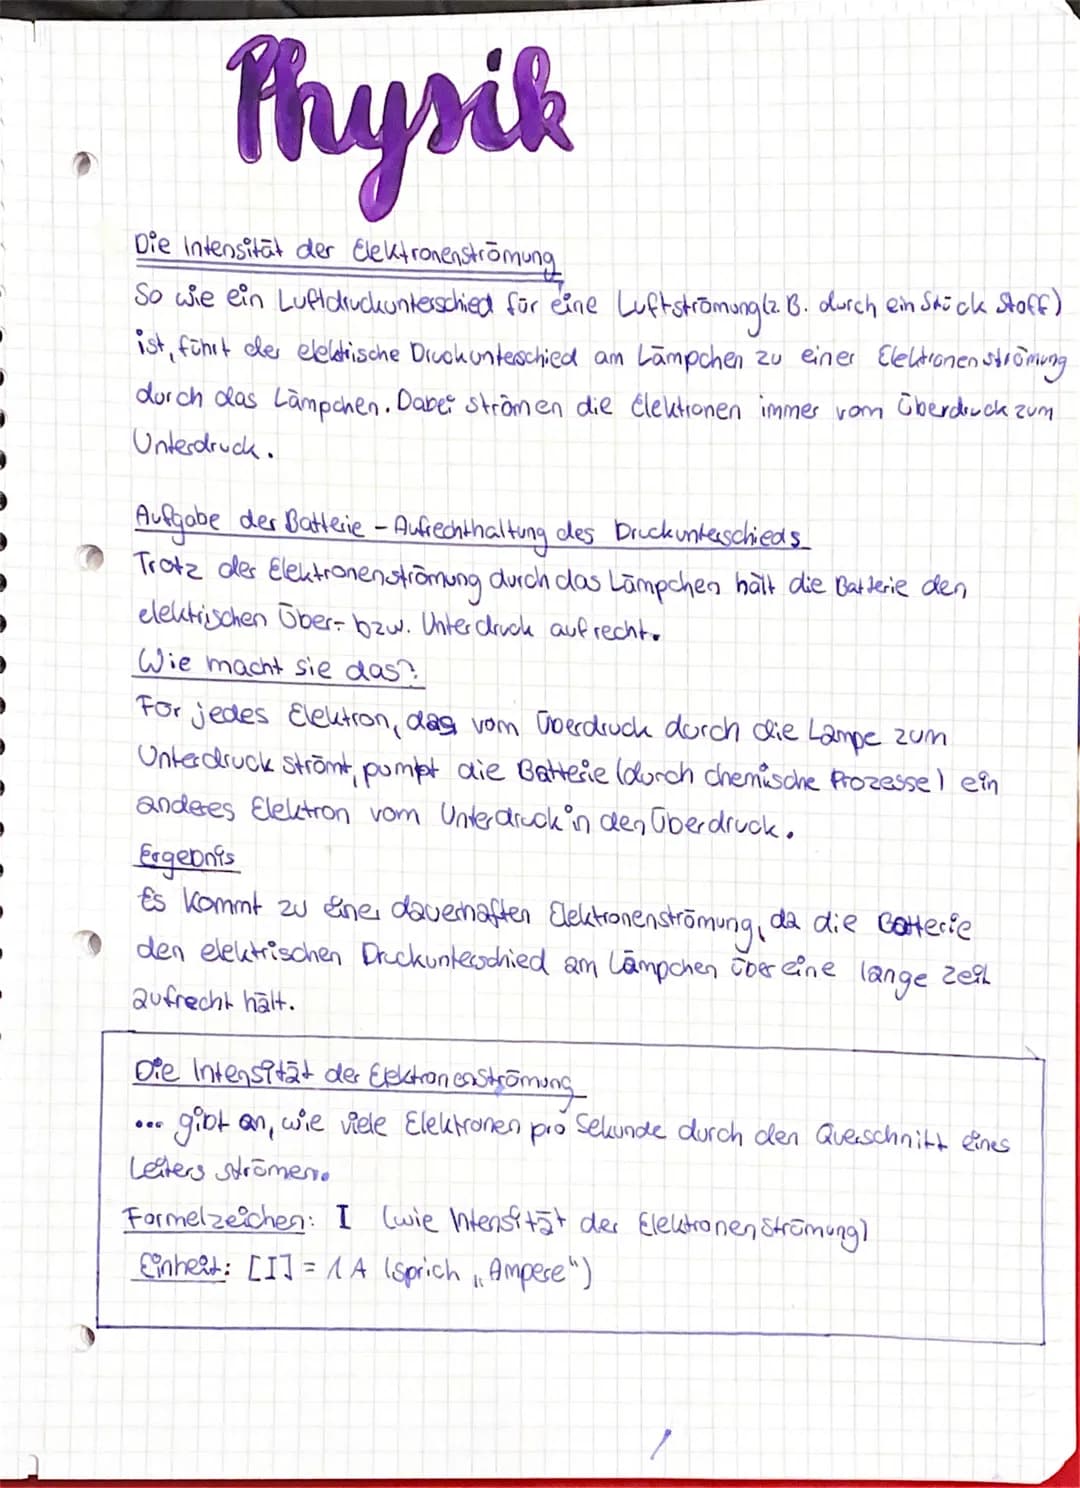 Physik
Die Intensität der Elektronenströmung
So wie ein Luftdruckunterschied für eine Luftströmung (z.B. durch ein Stück Stoff)
ist, führt der elektrische Druckunterschied am Lämpchen zu einer Elektronenströmung
durch das Lämpchen. Dabei strömen die Elektronen immer vom Überdruck zum
Unterdruck.
Aufgabe der Batterie - Aufrechthaltung des Druckunterschieds
Trotz der Elektronenströmung durch das Lämpchen hält die Batterie den
elektrischen Über- bzw. Unterdruck aufrecht.
Wie macht sie das?
Für jedes Elektron, das vom Überdruck durch die Lampe zum
Unterdruck strömt, pumpt die Batterie (durch chemische Prozesse) ein
anderes Elektron vom Unterdruck in den Überdruck.
Ergebnis
Es kommt zu einer dauerhaften Elektronenströmung, da die Batterie
den elektrischen Druckunterschied am Lämpchen über eine lange Zeit
aufrecht hält.
Die Intensität der Elektronenströmung
... gibt an, wie viele Elektronen pro Sekunde durch den Querschnitt eines
Leiters strömen.
Formelzeichen: I (wie Intensität der Elektronenströmung)
Einheit: [I] = 1 A (sprich „Ampere")